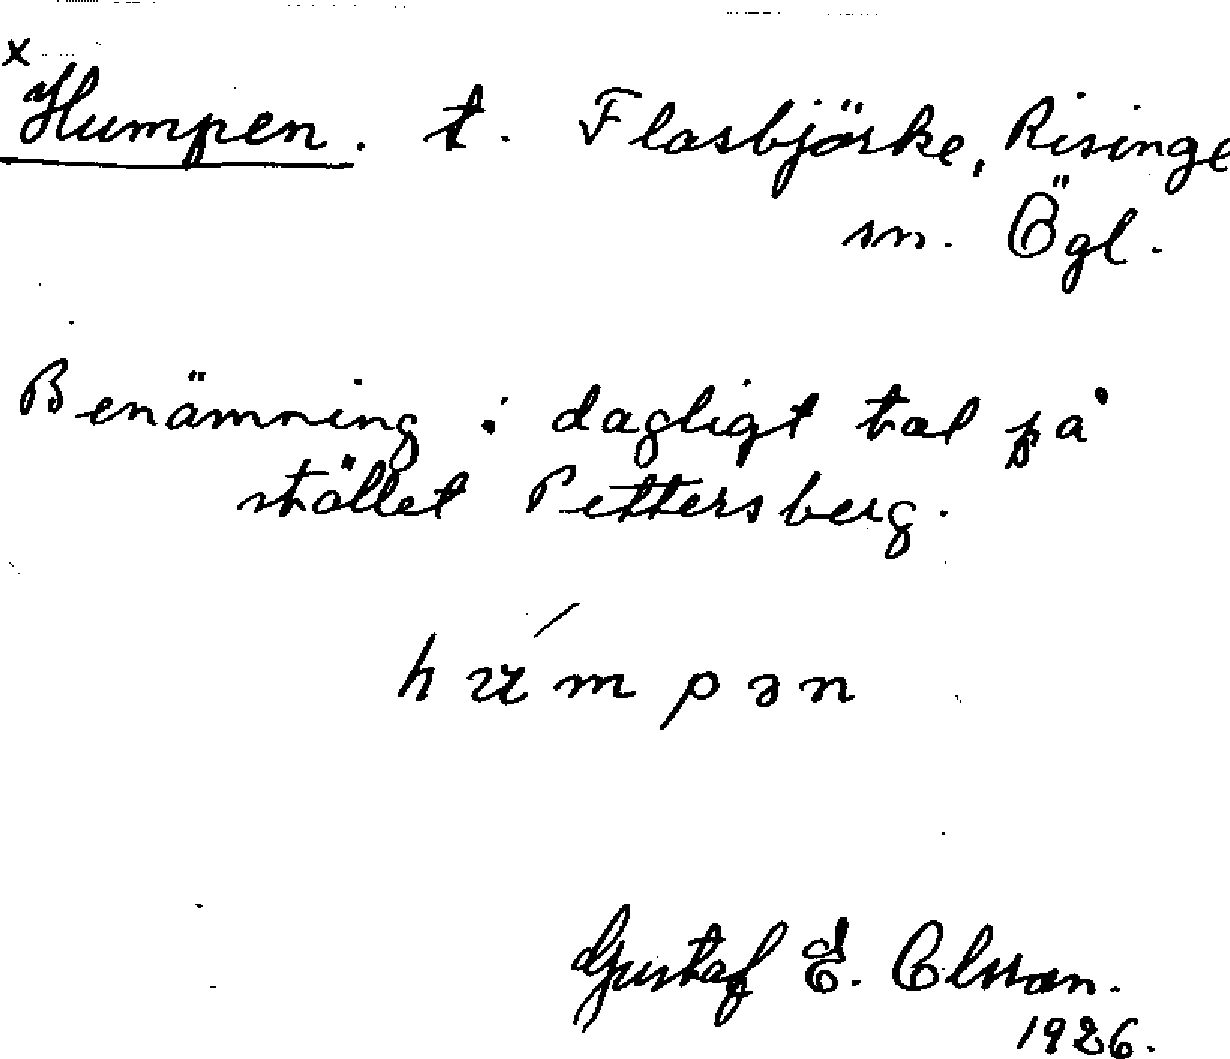 x
Humpen. t. Flasbjörke, Risinge
sn. Ögl.
Benämning i dagligt tal på
stället Pettersberg.
húmpən
Gustaf E. Olsson.
1926.